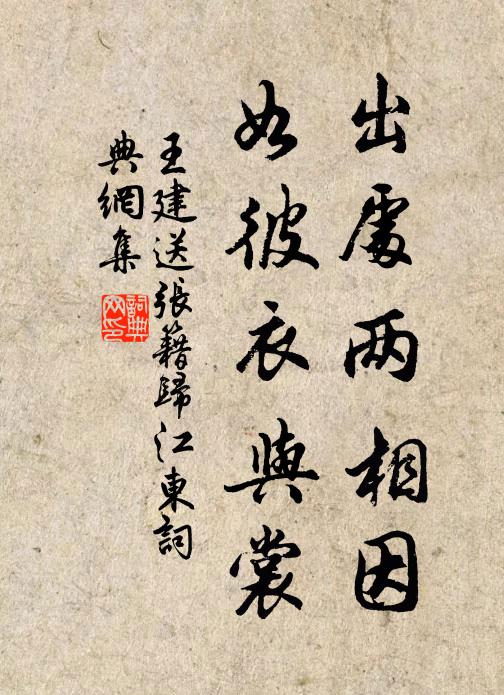 出處兩相因
如彼衣與裳
王建送張籍歸江東詞
典網集
詞典網印